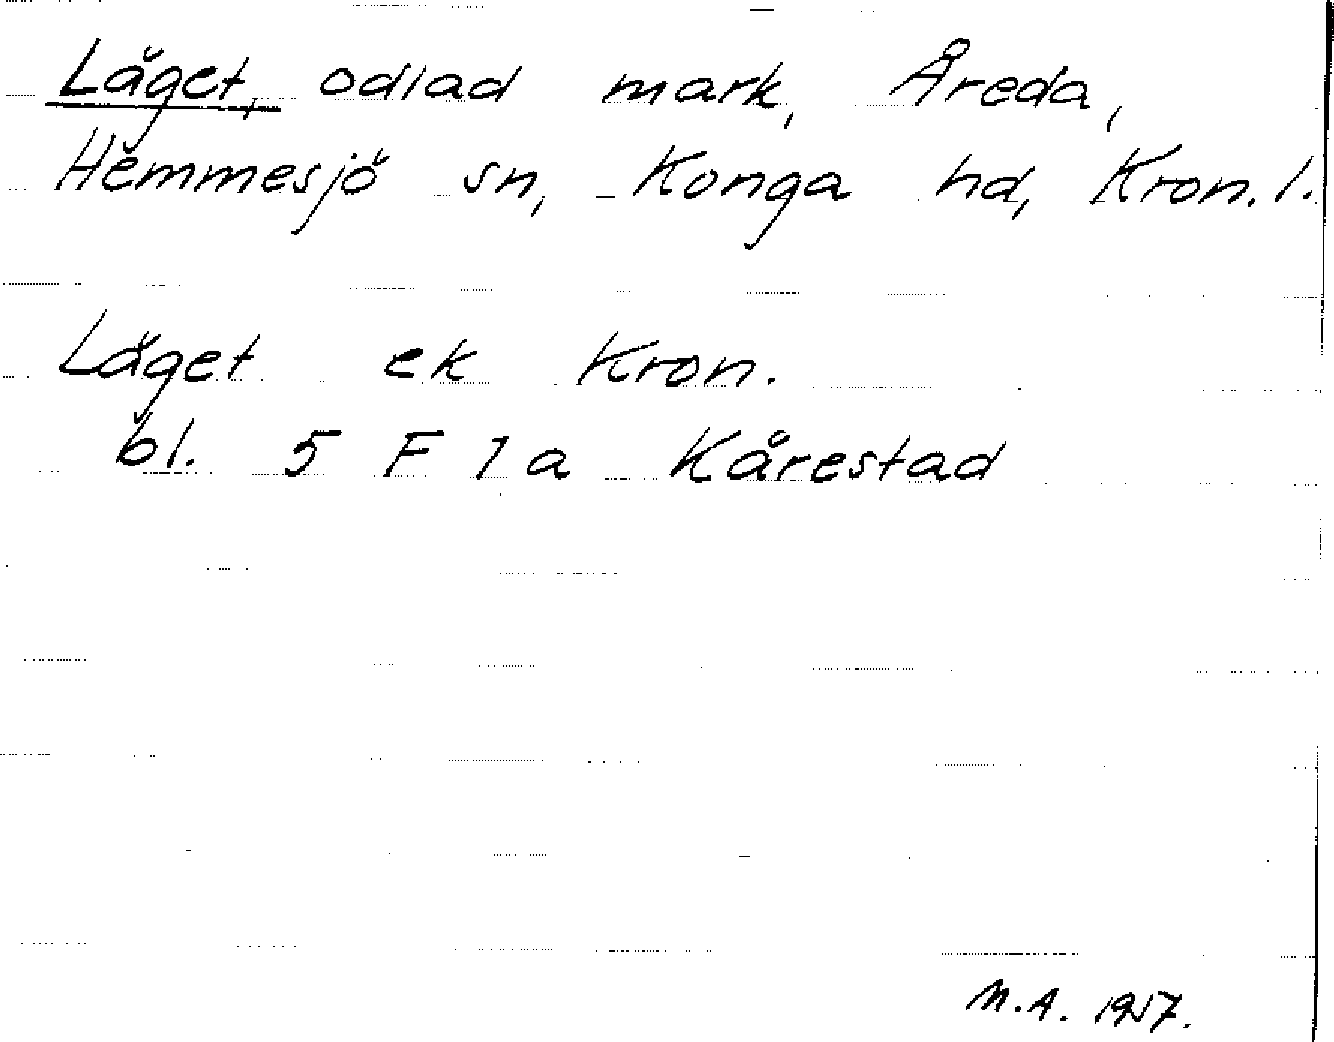 Läget, odlad mark, Åreda,
Hemmesjö sn, Konga hd, Kron. l.
Läget ek Kron.
bl. 5 F 1 a Kårestad
M.A. 1957.